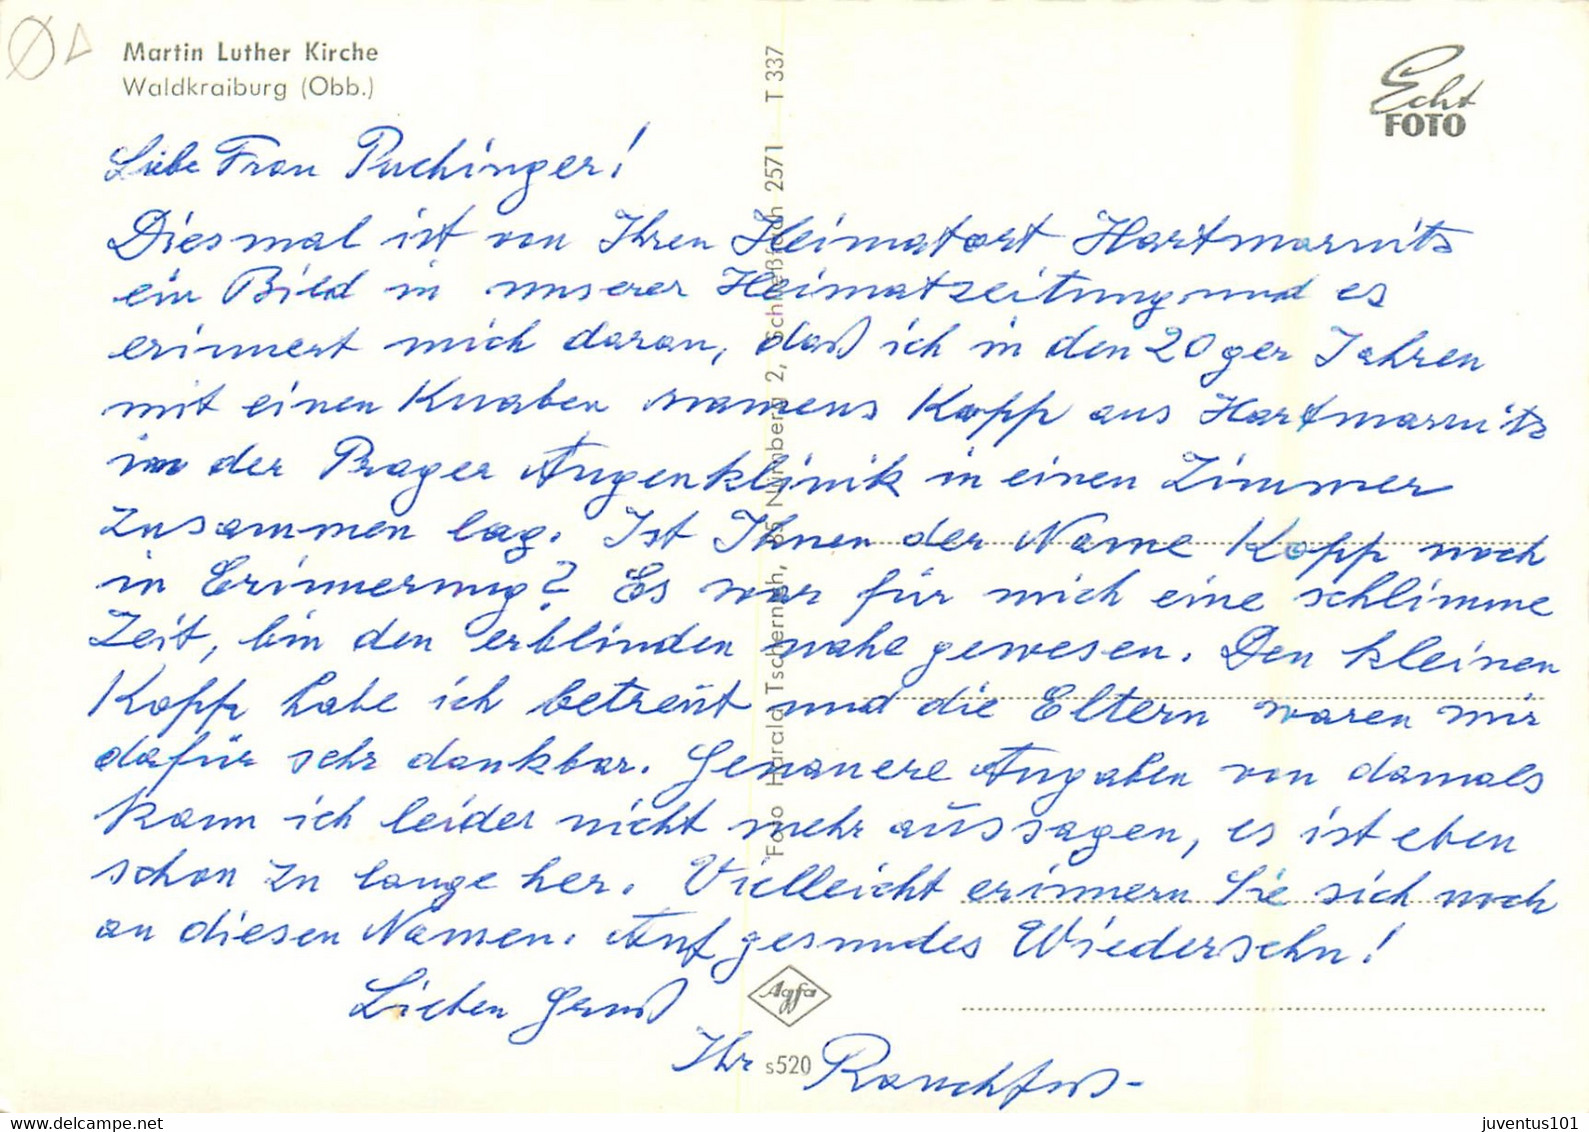 Martin Luther Kirche
Waldkraiburg (Obb.)
Echt
FOTO
Liebe Frau Puchinger!
Diesmal ist von Ihren Heimatort Hartmanits
ein Bild in unserer Heimatzeitung und es
erinnert mich daran, daß ich in den 20ger Jahren
mit einen Knaben namens Kopp aus Hartmanits
in der Prager Augenklinik in einen Zimmer
zusammen lag. Ist Ihnen der Name Kopp noch
in Erinnerung? Es war für mich eine schlimme
Zeit, bin den erblinden nahe gewesen. Den kleinen
Kopp habe ich betreut und die Eltern waren mir
dafür sehr dankbar. Genauere Angaben von damals
kann ich leider nicht mehr aussagen, es ist eben
schon zu lange her. Vielleicht erinnern Sie sich noch
an diesen Namen. Auf gesundes Wiedersehn!
Lieben Gruß
Ihr Rauchfuß-
Foto Harald Tschernich, 85 Nürnberg 2, Schließfach 2571 T 337
Agfa
s520
delcampe.net
juventus101